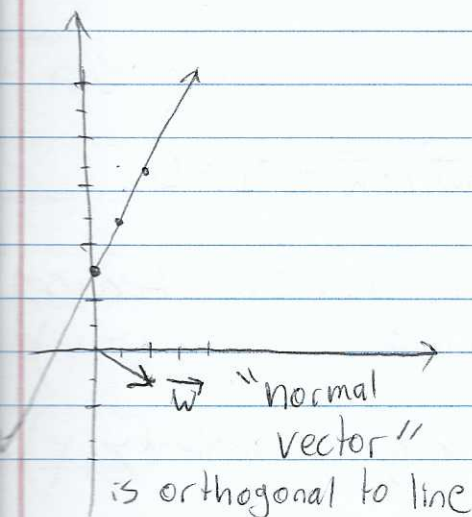 w⃗ "normal
vector"
is orthogonal to line